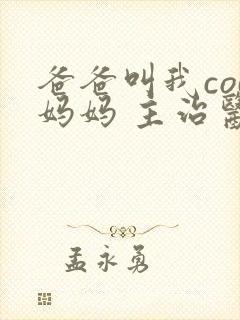 爸爸叫我co
妈妈 主治醫
孟永勇